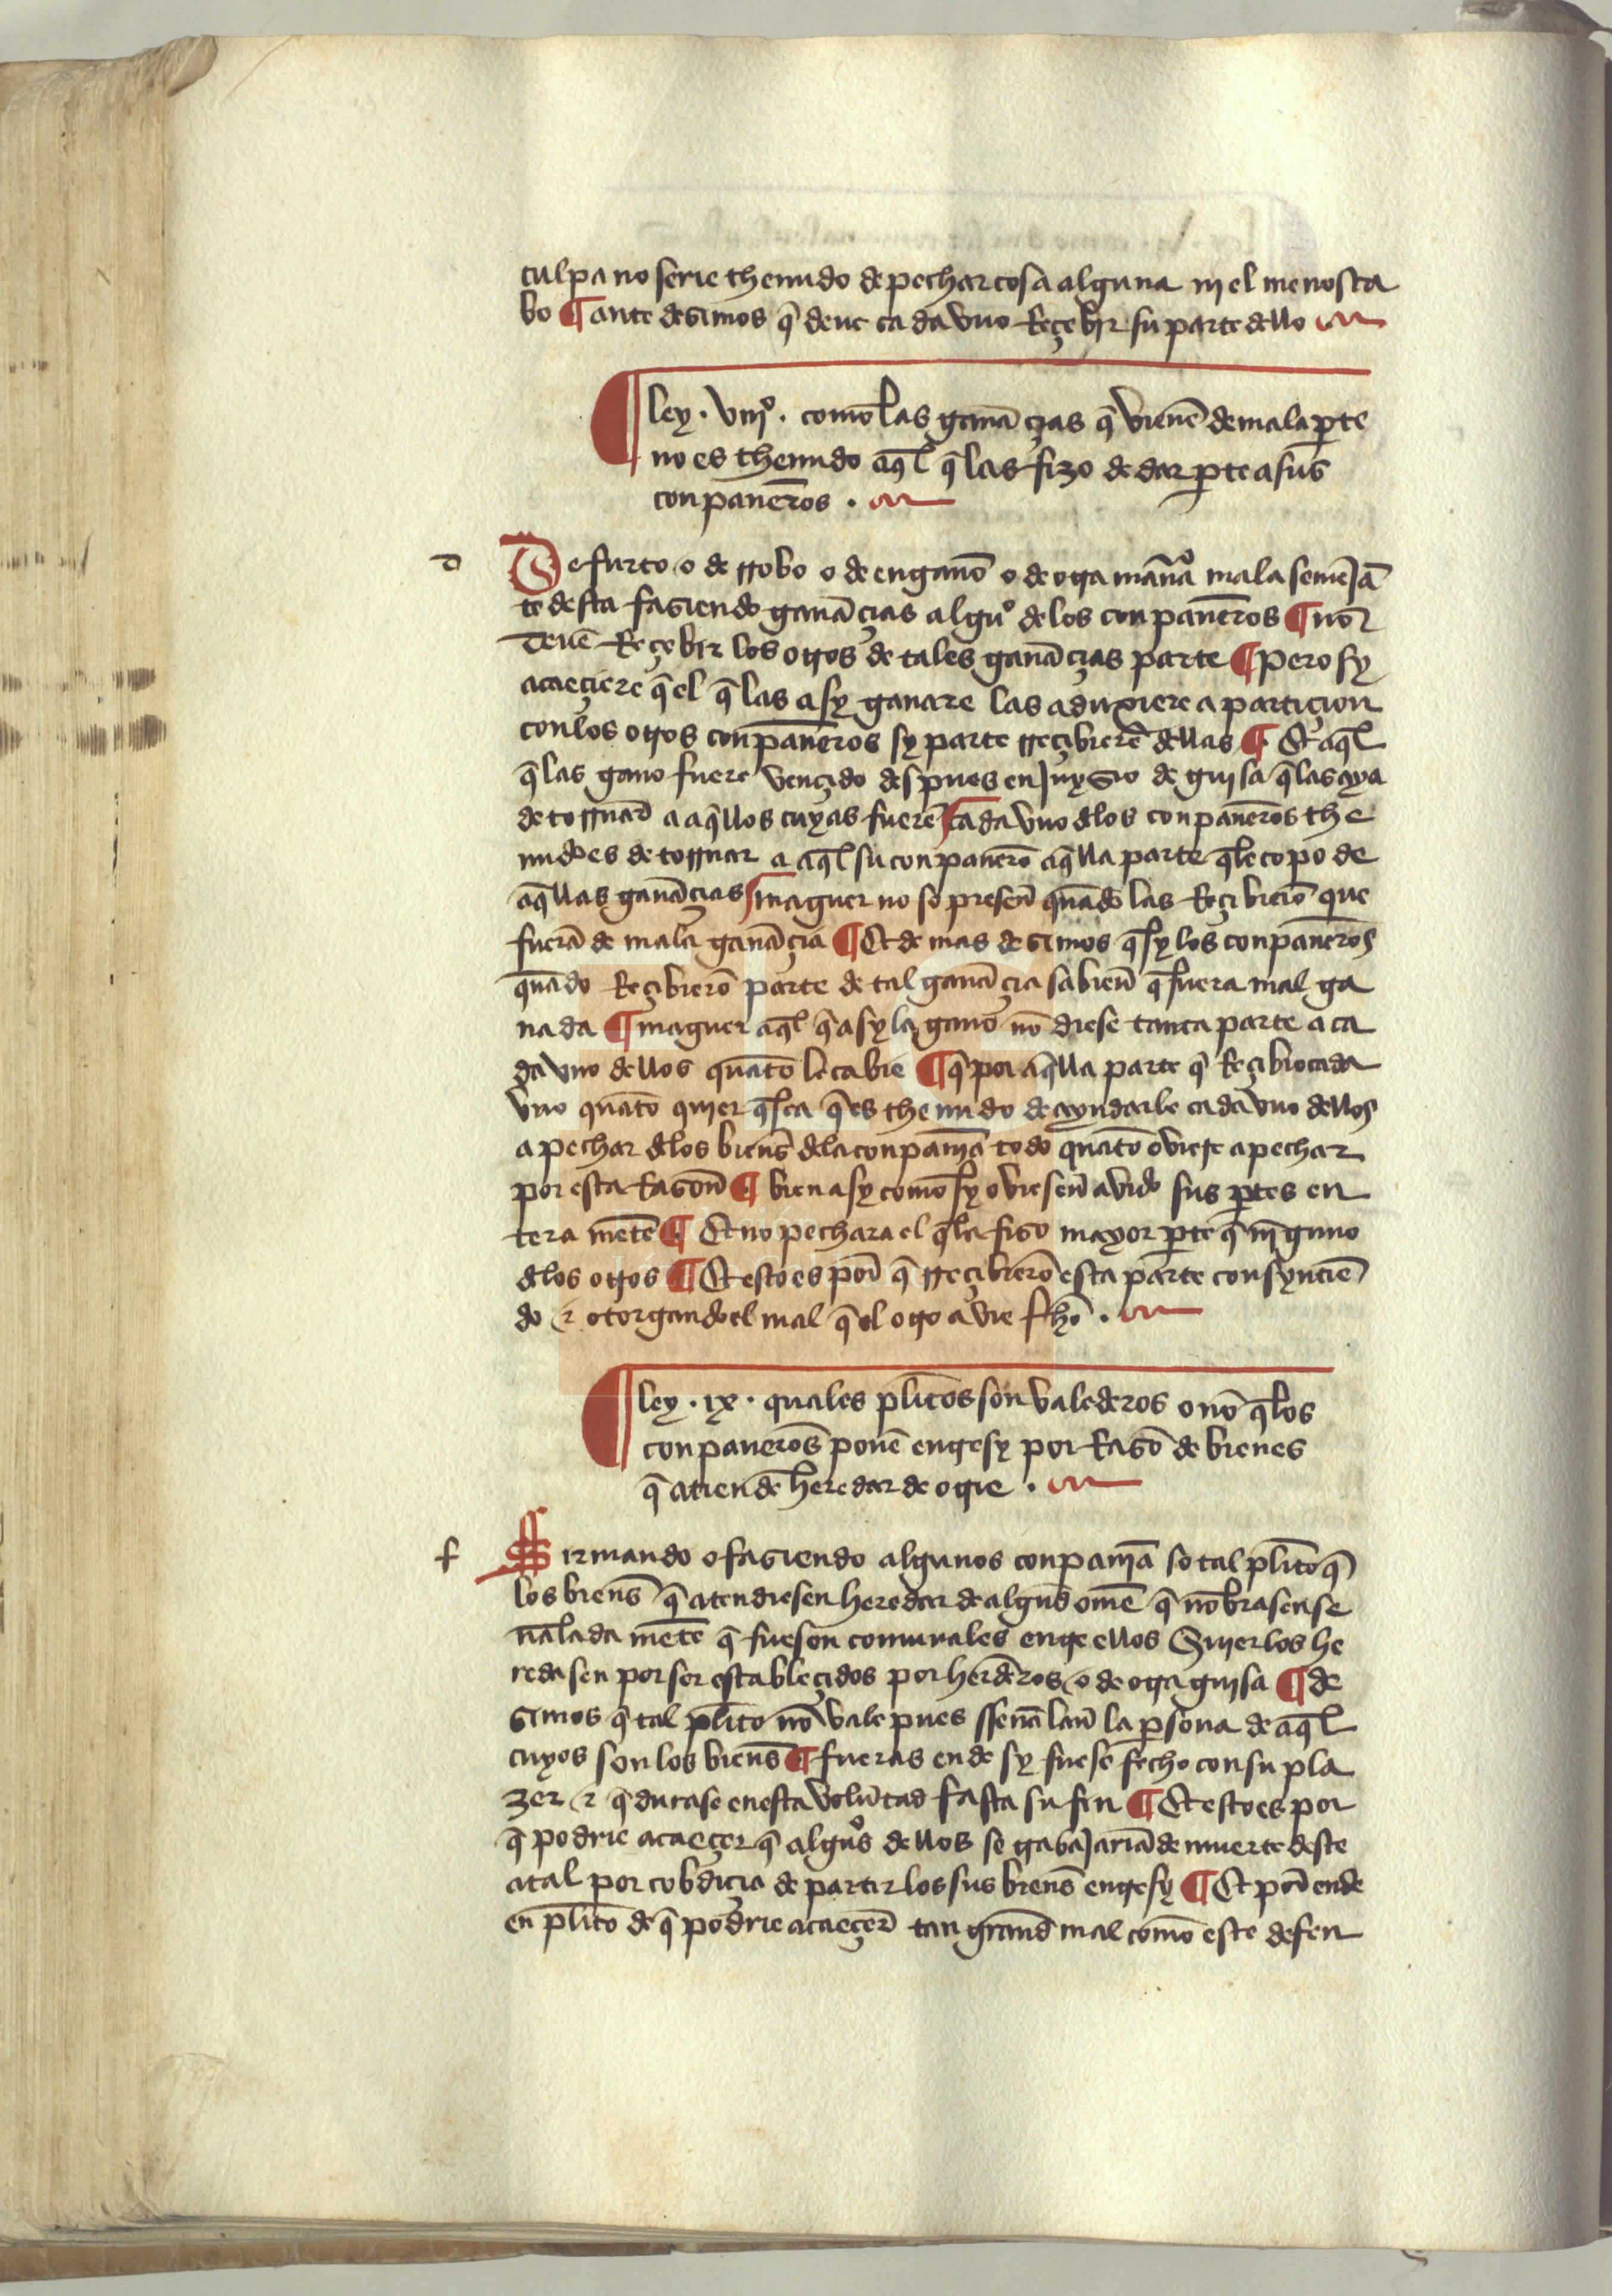 culpa no serie thenudo de pechar cosa alguna nj el menosca
bo ¶ ante desimos q̄ deue cada vno Reçebjr su parte dello
¶ ley · viijº · como las ganāçias q̄ vienē de mala ꝑte
no es thenudo aq̄l q̄ las fizo de dar ꝑte a sus
conpaneros ·
d
De furto o de rrobo o de engano o de otra manᵃa mala semejā
te desta fasiendo ganāçias algūº de los conpaneros ¶ non
deuē Reçebir los otros de tales ganāçias parte ¶ Pero sy
acaeçiere q̄ el q̄ las asy ganare las aduxiere a partiçion
con los otros conpaneros sy parte rreçibierē dellas ¶ Et aq̄l
q̄ las gano fuere vençido despues en juysio de guisa q̄ las aya
de tornar a aq̄llos cuyas fuerē cada vno dlos conpaneros the
nudo es de tornar a aq̄l su conpanero aq̄lla parte q̄ le copo de
aq̄llas ganāçias maguer no sopiesen quādo las Reçibierō que
fuerā de mala ganāçia ¶ Et de mas desimos q̄ sy los conpaneros
quādo Reçibierō parte de tal ganāçia sabien q̄ fuera mal ga
nada ¶ maguer aq̄l q̄ asy la gano nō diese tanta parte a ca
da vno dellos quāto le cabie ¶ q̄ por aq̄lla parte q̄ Reçibio cada
vno quāto quier q̄ sea q̄ es thenudo de ayudarle cada vno dellos
a pechar dlos bienes dla conpanja todo quāto oviese a pechar
por esta Rason ¶ bien asy como sy oviesen avido sus ꝑtes en
tera mēte ¶ Et no pechara el q̄ la fiso mayor ꝑte q̄ njnguno
dlos otros ¶ Et esto es por q̄ rreçibierō esta parte consyntiē
do ⁊ otorgando el mal q̄ el otro avie fho ·
¶ ley · ix · quales plitos son valederos o nō q̄ los
conpaneros ponē entre sy por Rasō de bienes
q̄ atiendē heredar de otrie ·
f
Firmando o fasiendo algunos conpanja so tal plito q̄
los bienes q̄ atendiesen heredar de algund ome q̄ nōbrasen se
nalada mēte q̄ fuesen comunales entre ellos Quier los he
redasen por ser estableçidos por herderos o de otra guisa ¶ de
simos q̄ tal plito nō vale pues ssenalan la ꝑsona de aq̄l
cuyos son los bienes ¶ fueras ende sy fuese fecho con su pla
zer ⁊ q̄ durase en esta volūtad fasta su fin ¶ Et esto es por
q̄ podrie acaeçer q̄ algūºs dellos se trabajariā de muerte deste
atal por cobdiçia de partir los sus bienes entre sy ¶ Et por ende
en plito de q̄ podrie acaeçer tan grand mal como este defen